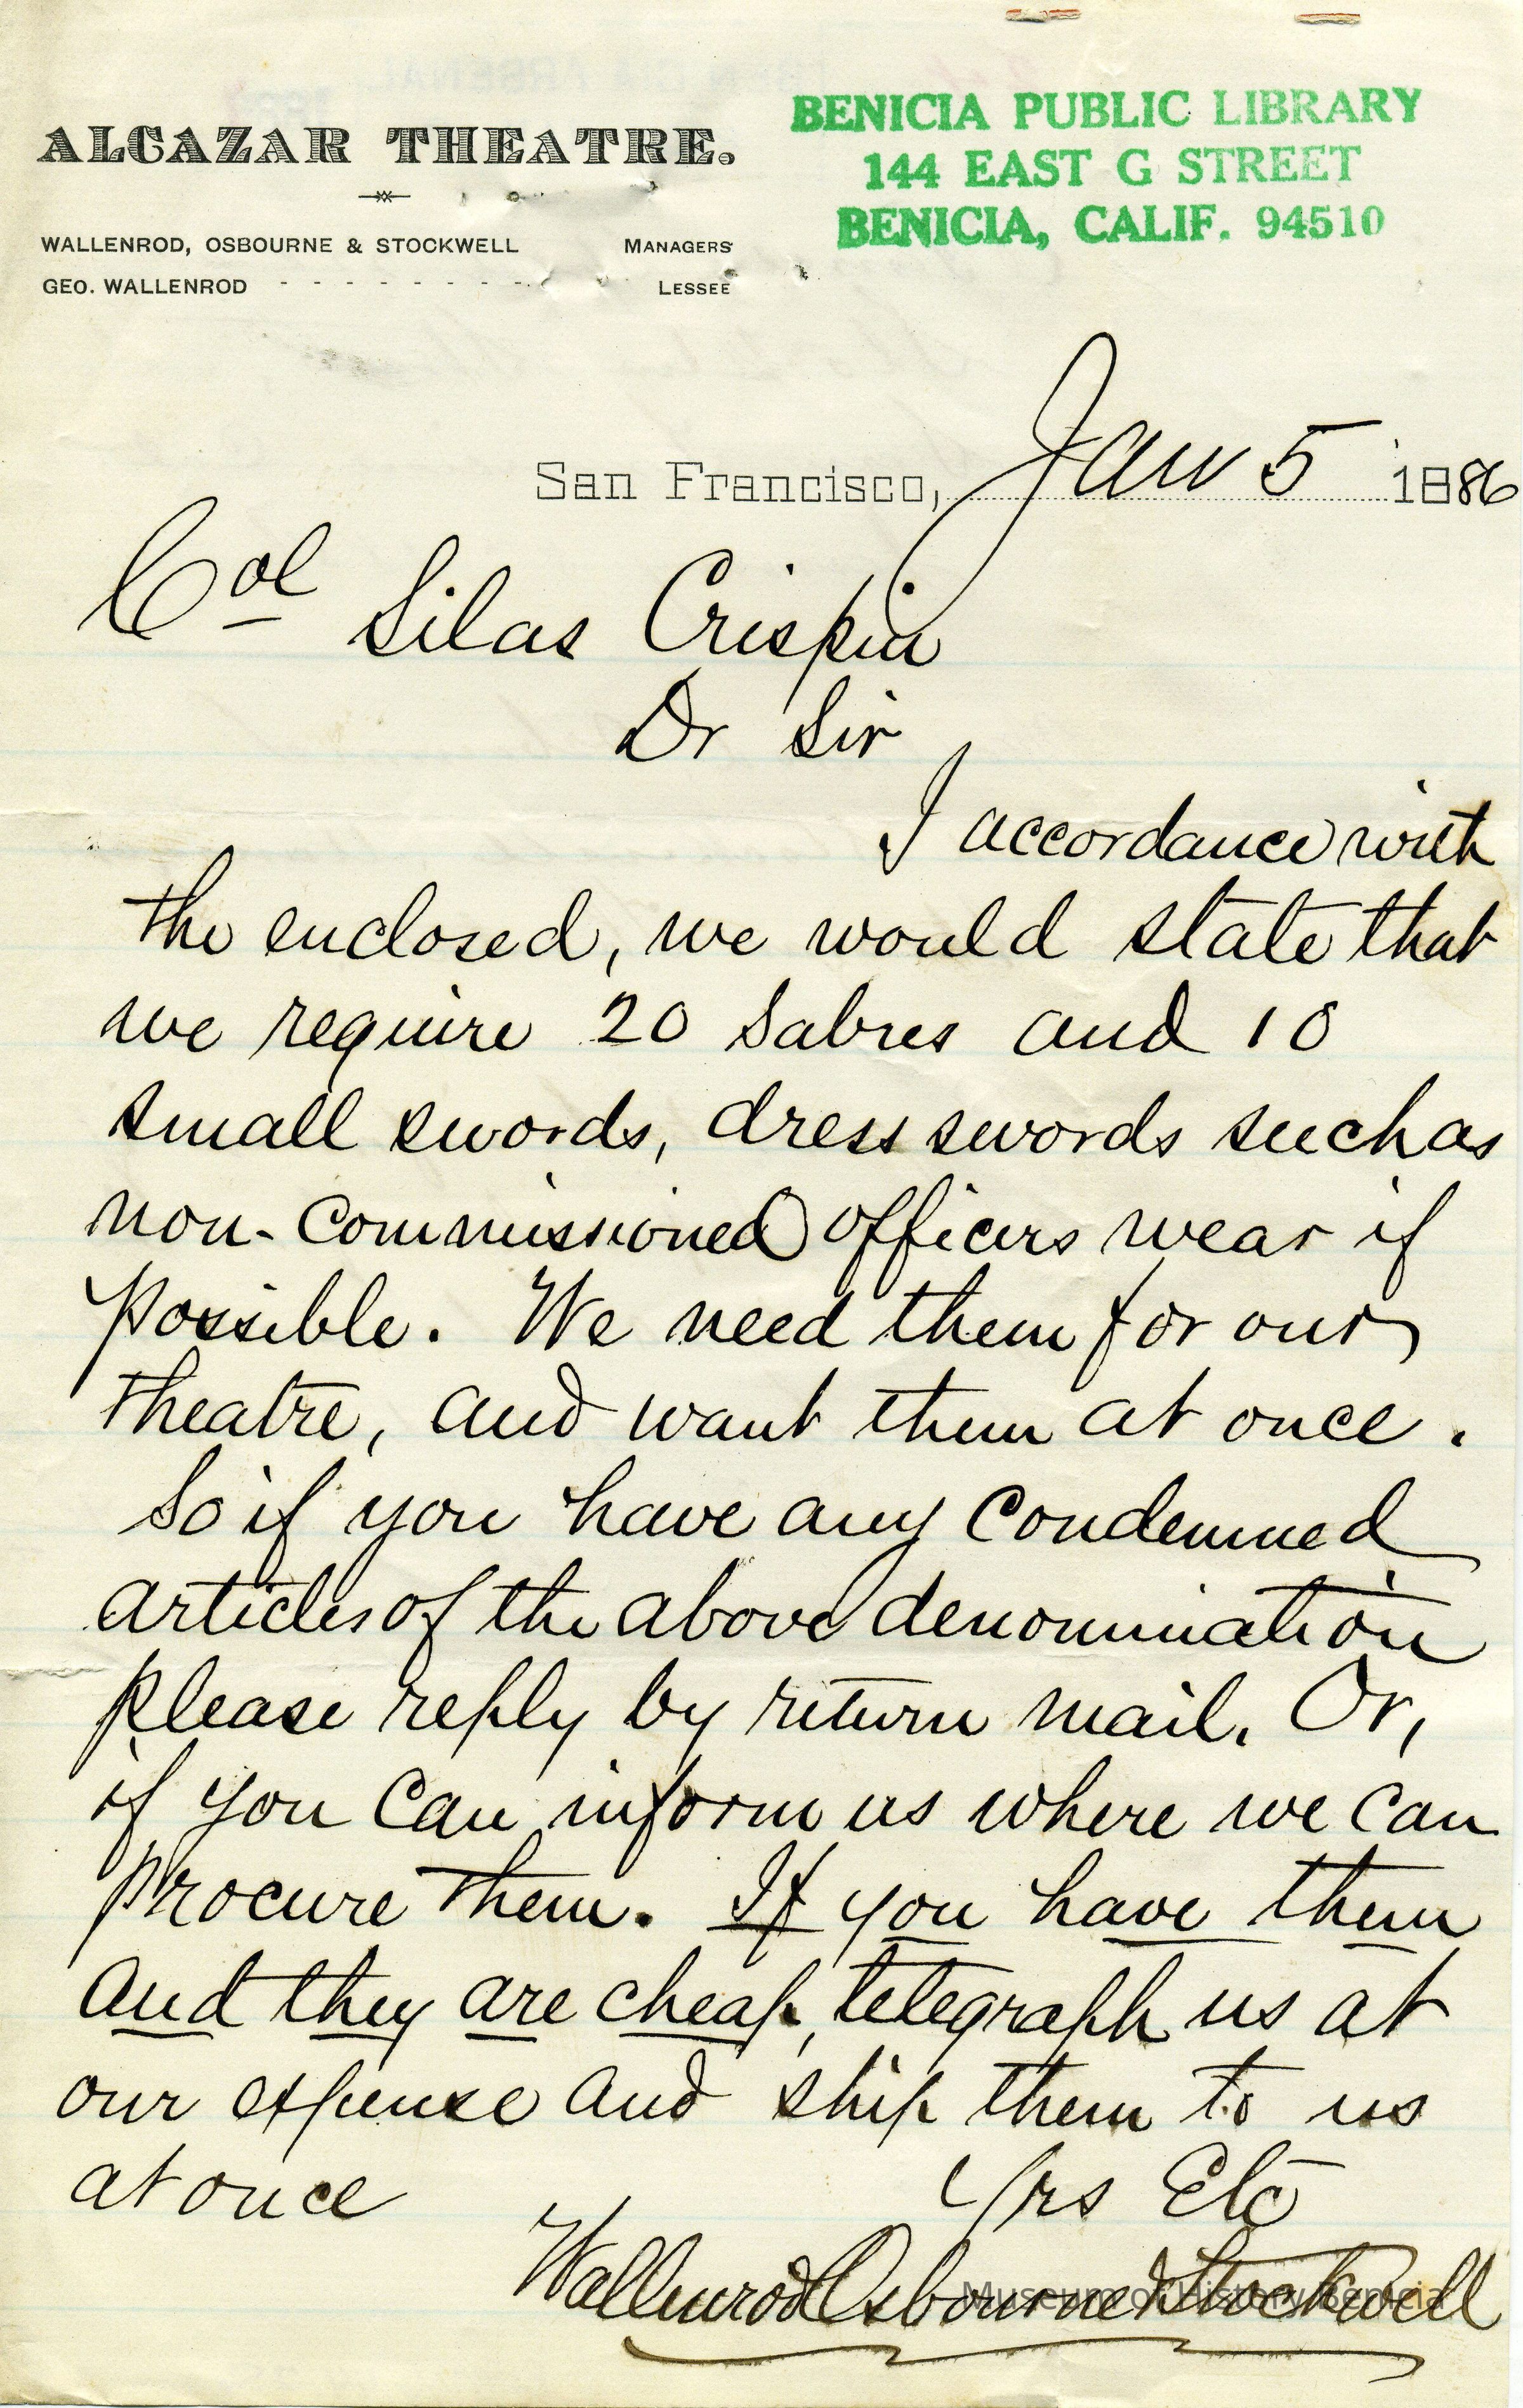 ALCAZAR THEATRE.
WALLENROD, OSBOURNE & STOCKWELL MANAGERS
GEO. WALLENROD - - - - - - - - - LESSEE
BENICIA PUBLIC LIBRARY
144 EAST G STREET
BENICIA, CALIF. 94510
San Francisco, Jan 5 1886
Col Silas Crispin
Dr Sir
I accordance with
the enclosed, we would state that
we require 20 Sabres and 10
small swords, dress swords such as
non-commissioned officers wear if
possible. We need them for our
theatre, and want them at once.
So if you have any condemned
articles of the above denomination
please reply by return mail. Or,
if you can inform us where we can
procure them. If you have them
and they are cheap, telegraph us at
our expense and ship them to us
at once
Yrs Etc
Wallenrod Osbourne & Stockwell
Museum of History Benicia